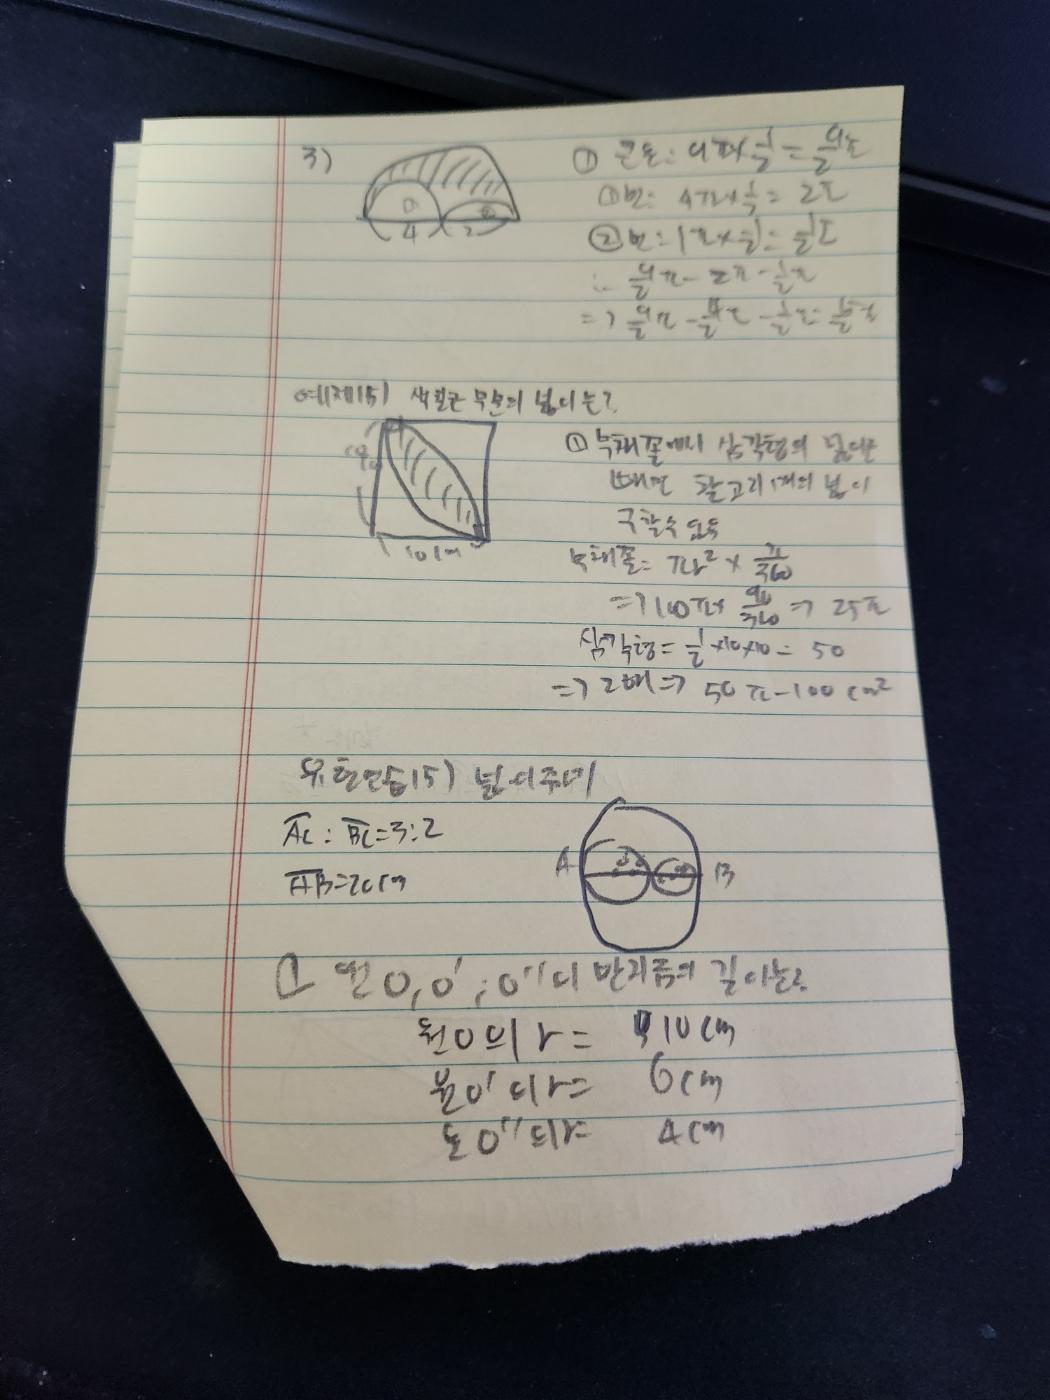 3)
① 큰원: 9π×1/2 = 9/2π
①번: 4π×1/2 = 2π
②번=1π×1/2= 1/2π
∴ 9/2π - 2π - 1/2π
=> 9/2π - 4/2π - 1/2π
① 4 ② 2
예제15) 색칠한 부분의 넓이는?
10cm
① 부채꼴에서 삼각형의 넓이를
빼면 활고리 1개의 넓이
구할수
부채꼴= πr² × /360
=> 100π× 90/360 => 25π
삼각형= 1/2 ×10×10 = 50
=> 2배=> 50π-100 cm²
유형연습15)
AC : BC=3:2
AB=20cm
A B
① 원O,O',O''의 반지름의 길이는?
원O의 r = 10cm
원O'의r= 6cm
원O''의r= 4cm